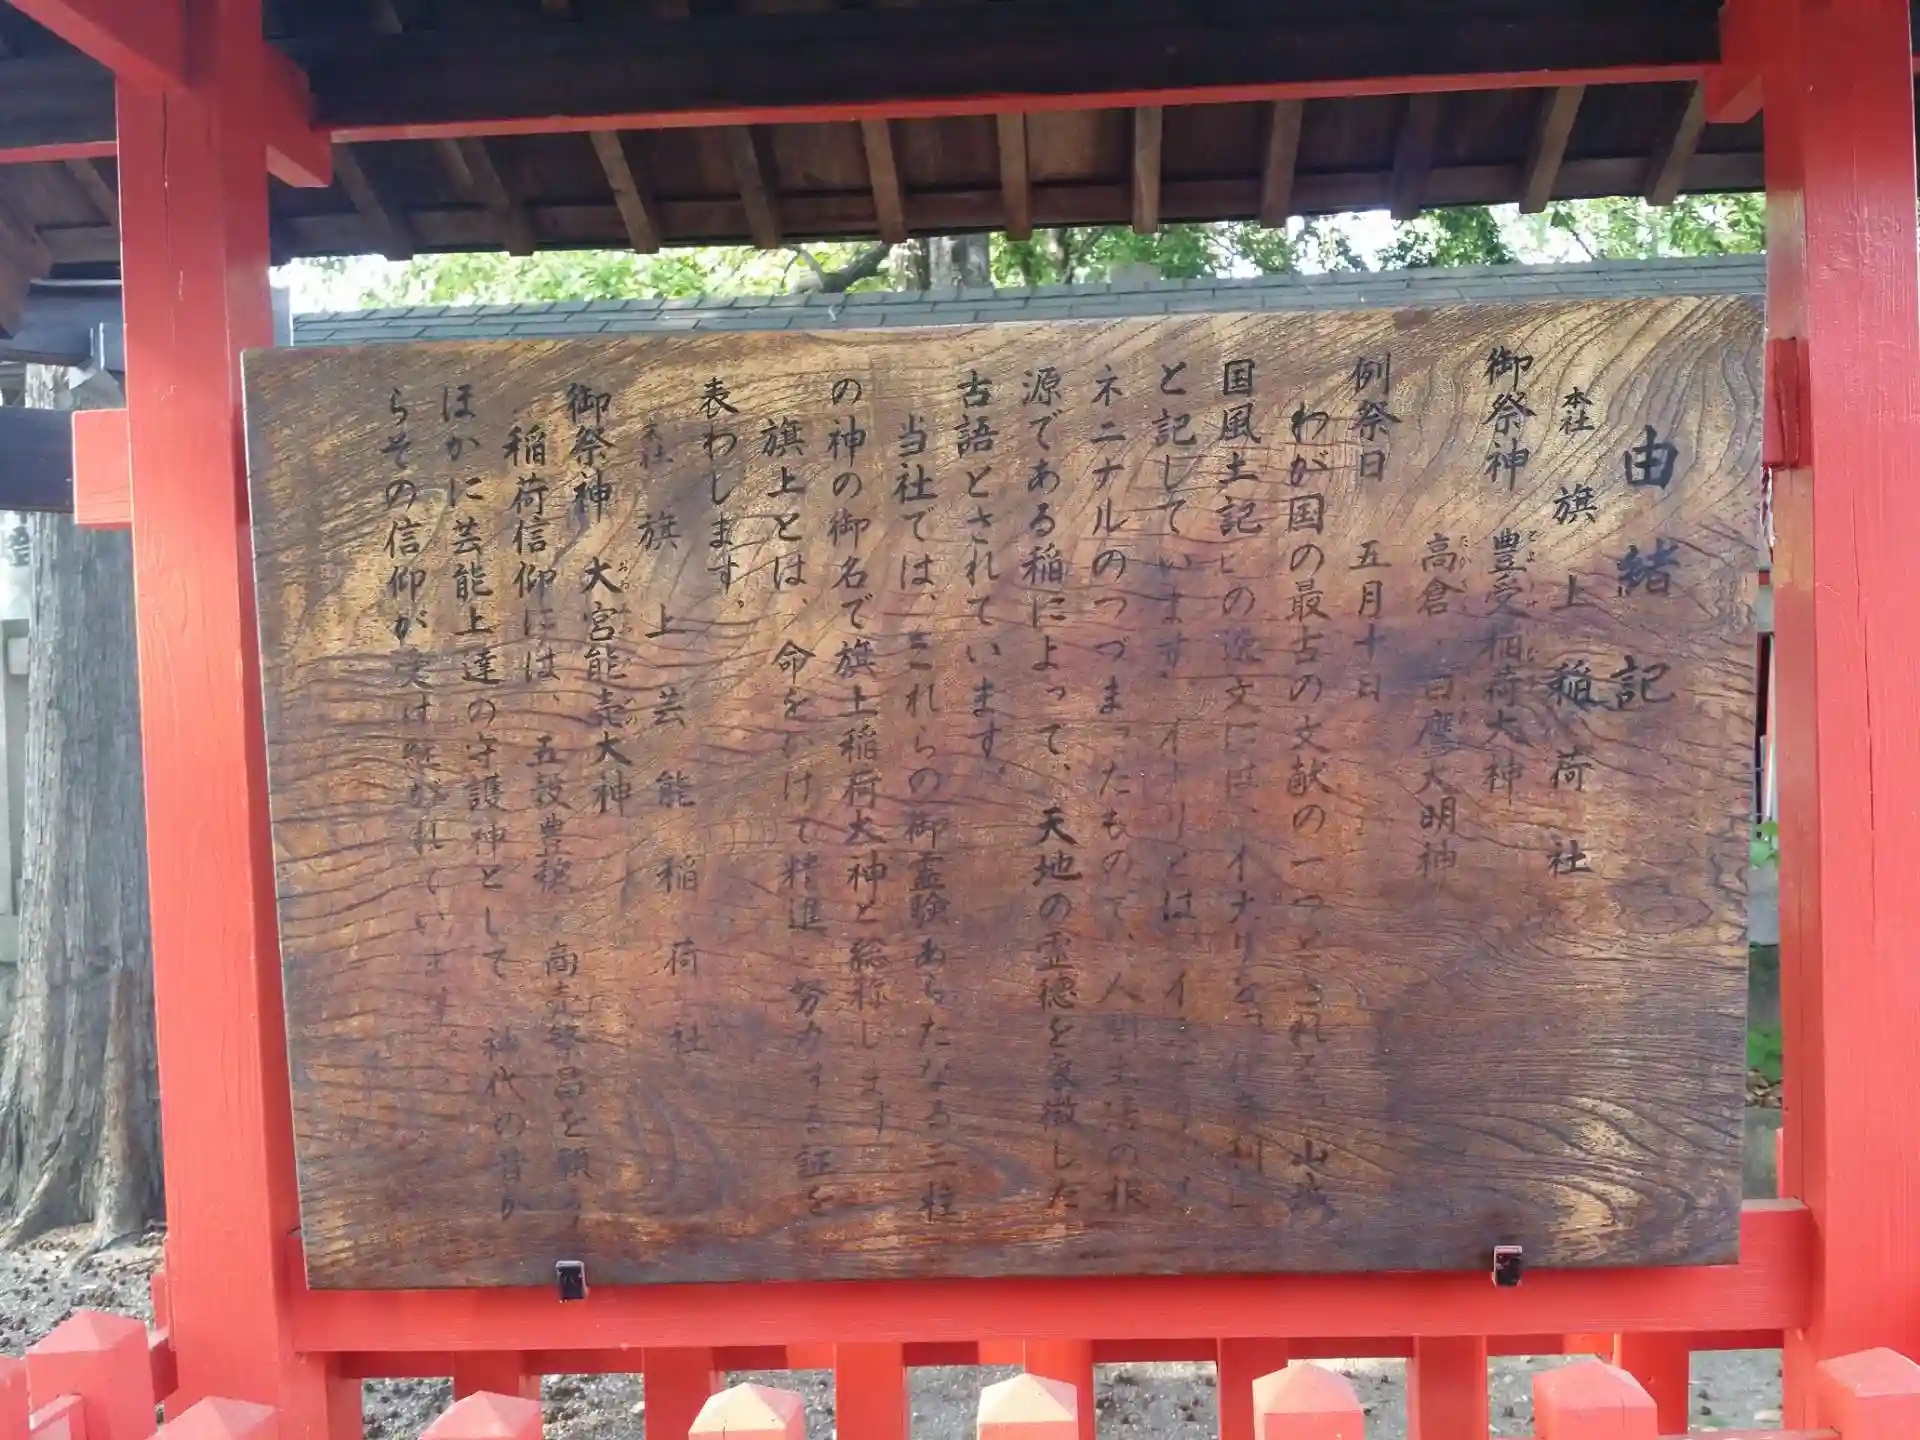 由緒記
本社 旗上稲荷社
御祭神 豊受稲荷大神
高倉・白鷹大明神
例祭日 五月十日
わが国の最古の文献の一つとされる、山城
国風土記の逸文には、イナリを
と記しています。イナリとは、イ
ネニナルのつづまったもので、人間生活の根
源である稲によって、天地の霊徳を象徴した
古語とされています。
当社では、これらの御霊験あらたなる三柱
の神の御名で旗上稲荷大神と総称します
旗上とは、命をかけて精進・努力する証を
表わします。
末社 旗上芸能稲荷社
御祭神 大宮能売大神
稲荷信仰には、五穀豊穣・商売繁昌を願う
ほかに芸能上達の守護神として 神代の昔か
らその信仰が受け継がれています。